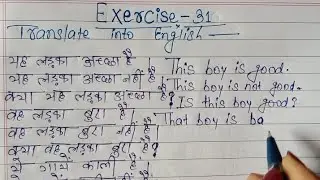 Exercise-31
Translate into English—
यह लड़का अच्छा है। This boy is good.
यह लड़का अच्छा नहीं है। This boy is not good.
क्या यह लड़का अच्छा है? IS this boy good?
वह लड़का बुरा है। That boy is ba
वह लड़का बुरा नहीं है।
क्या वह लड़का बुरा है?
ये गायें काली हैं।